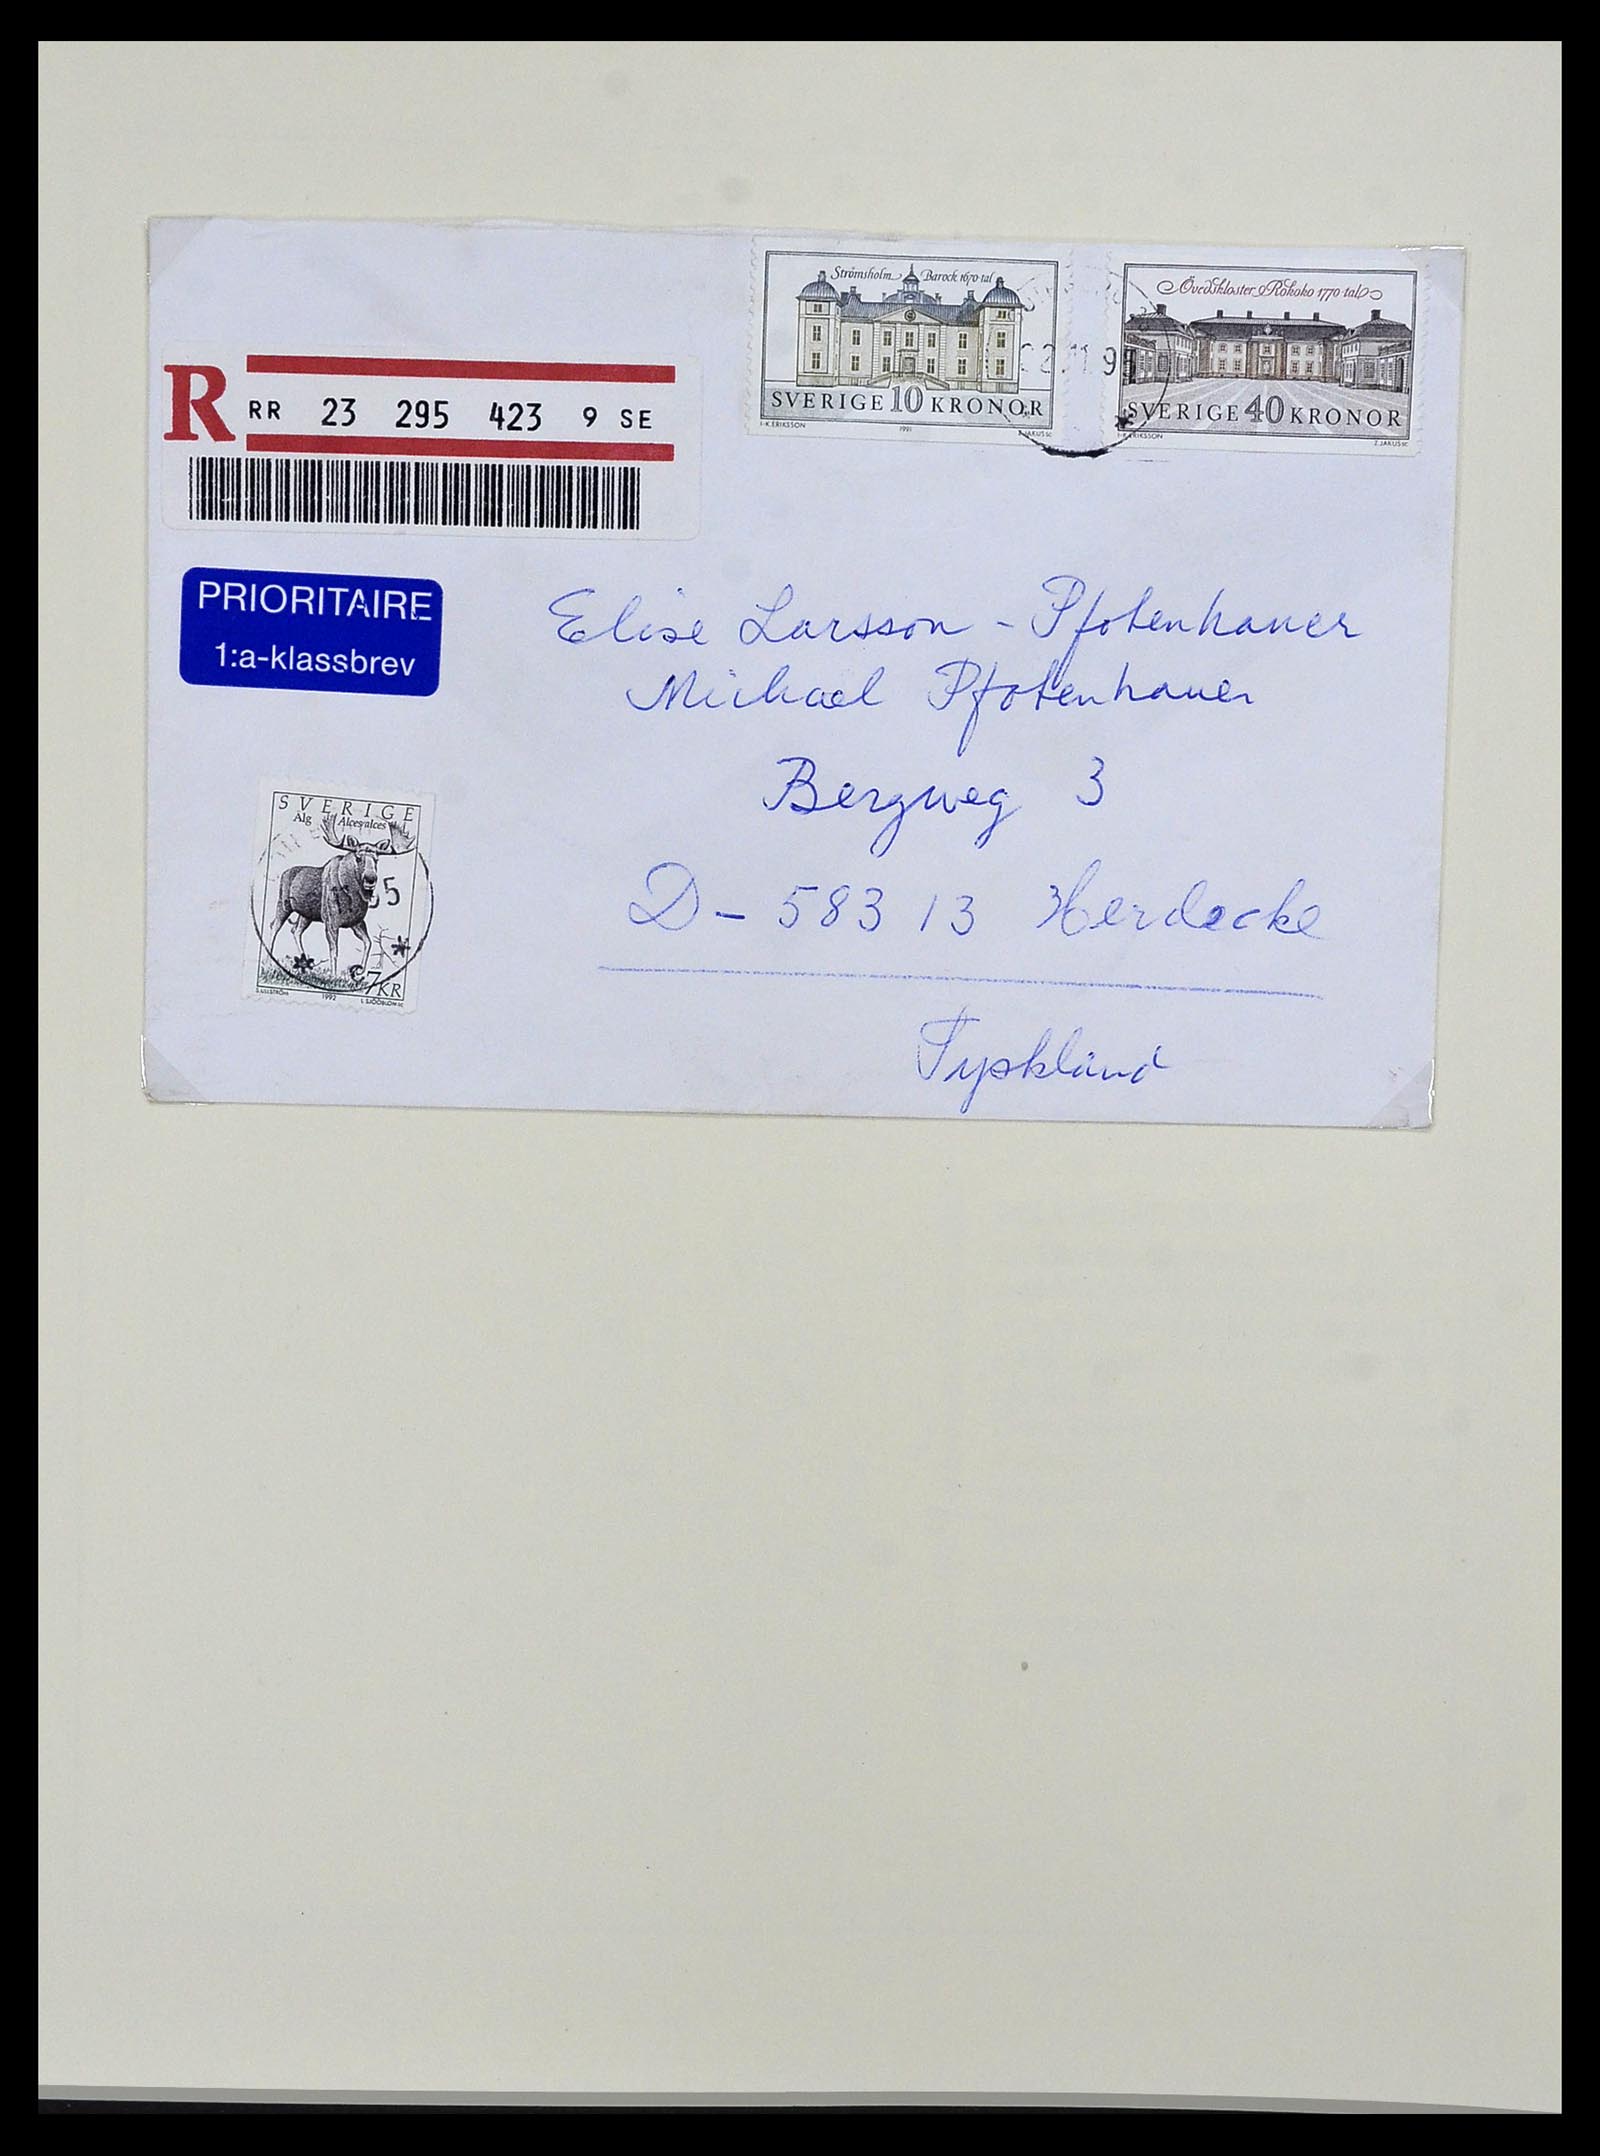 Strömsholm Barock 1670-tal
SVERIGE 10 KRONOR
I-K.ERIKSSON 1991 Z.JAKUS SC
Övedskloster Rokoko 1770-tal
SVERIGE 40 KRONOR
I-K.ERIKSSON Z.JAKUS SC
R RR 23 295 423 9 SE
PRIORITAIRE
1:a-klassbrev
Elise Larsson - Pfotenhauer
Michael Pfotenhauer
Bergweg 3
D - 58313 Herdecke
Tyskland
SVERIGE
Älg Alces alces
7 KR
S.ULLSTRÖM 1992 L.SJÖÖBLOM SC